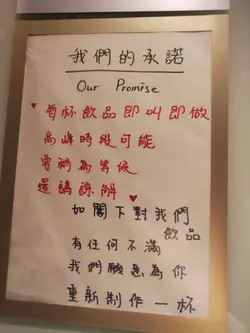 我們的承諾
Our Promise
每杯飲品即叫即做
高峰時段可能
需稍為等候
還請諒解
如閣下對我們
飲品
有任何不滿
我們願意為你
重新制作一杯